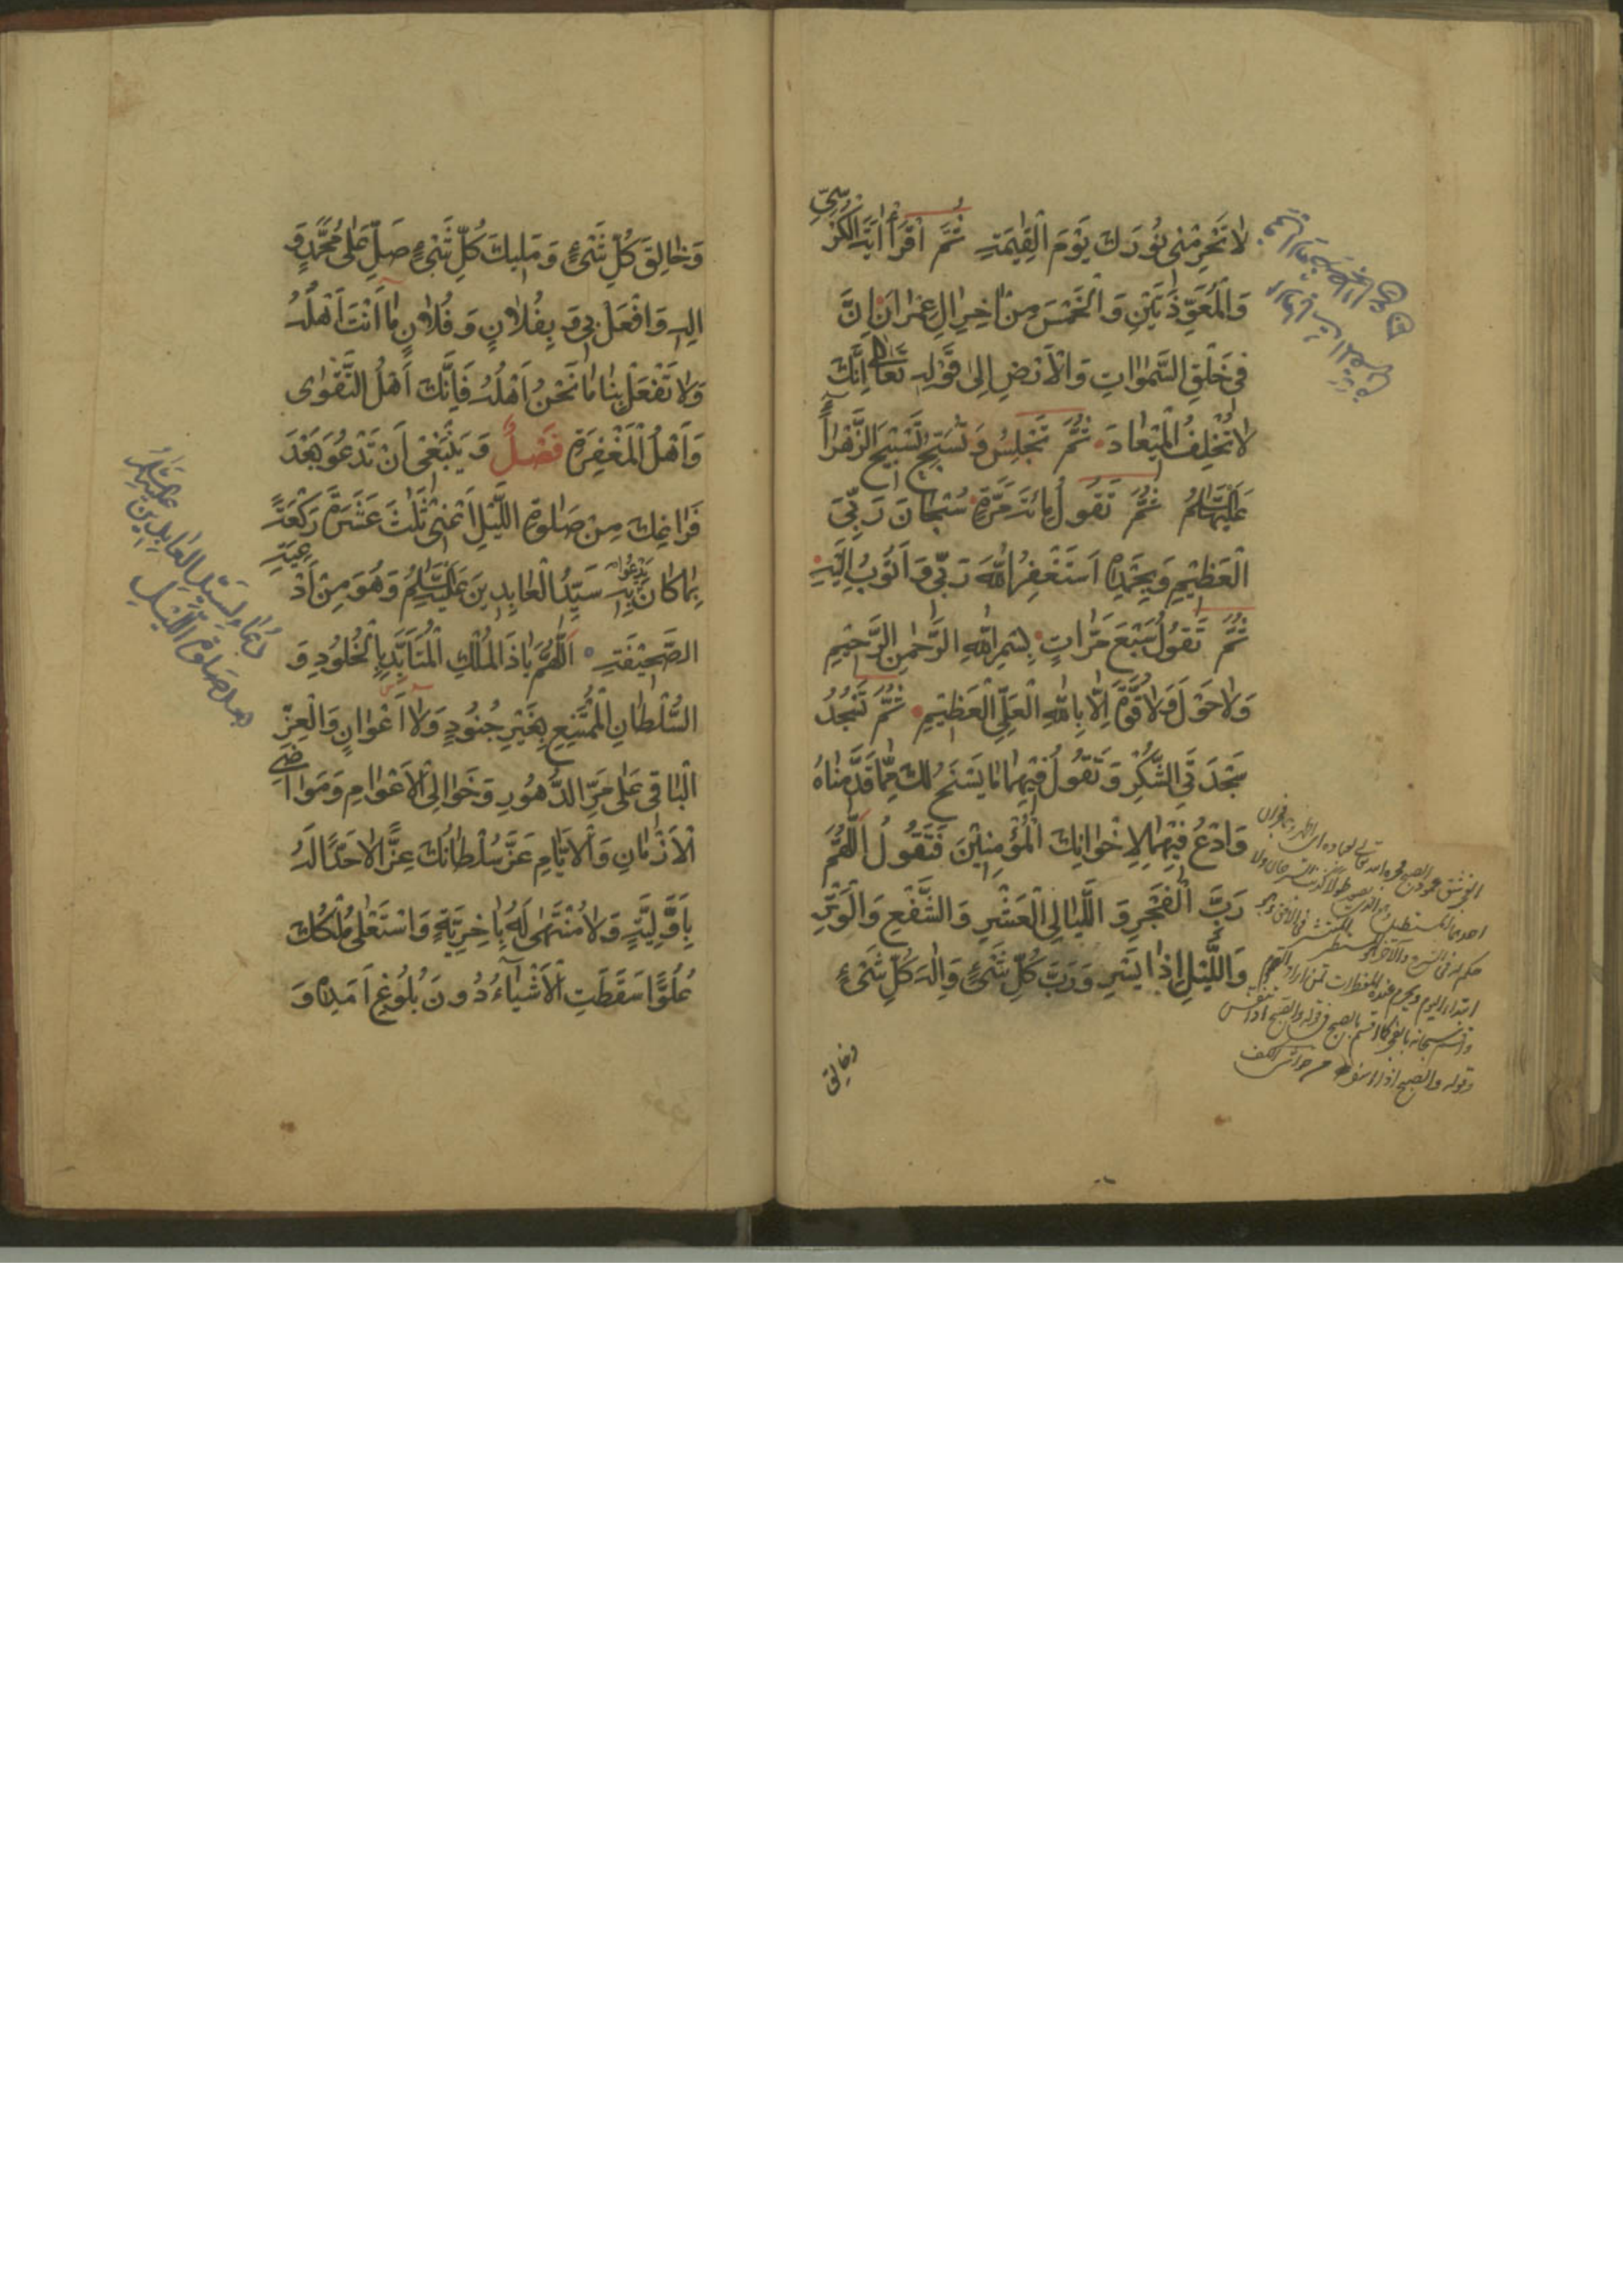 لا تَحْرِمْنِي نُورَكَ يَوْمَ الْقِيٰمَةِ ثُمَّ اقْرَأْ اٰيَةَ الْكُرْسِيِّ
وَالْمُعَوِّذَتَيْنِ وَالْخَمْسَ مِنْ اٰخِرِ اٰلِ عِمْرَانَ اِنَّ
فِي خَلْقِ السَّمٰوَاتِ وَالْاَرْضِ اِلىٰ قَوْلِهِ تَعَالىٰ اِنَّكَ
لا تُخْلِفُ الْمِيْعَادَ ثُمَّ تَجْلِسُ وَتُسَبِّحُ تَسْبِيْحَ الزَّهْرَاءِ
عَلَيْهَا السَّلَامُ ثُمَّ تَقُولُ مِائَةَ مَرَّةٍ سُبْحَانَ رَبِّيَ
الْعَظِيْمِ وَبِحَمْدِهِ اَسْتَغْفِرُ اللّٰهَ رَبِّي وَاَتُوبُ اِلَيْهِ
ثُمَّ تَقُولُ سَبْعَ مَرَّاتٍ بِسْمِ اللّٰهِ الرَّحْمٰنِ الرَّحِيْمِ
وَلَا حَوْلَ وَلَا قُوَّةَ اِلَّا بِاللّٰهِ الْعَلِيِّ الْعَظِيْمِ ثُمَّ تَسْجُدُ
سَجْدَتَيِ الشُّكْرِ وَتَقُولُ فِيْهِمَا مَا يَسْنَحُ لَكَ مِمَّا قَدَّمْنَاهُ
وَادْعُ فِيْهِمَا لِاِخْوَانِكَ الْمُؤْمِنِيْنَ فَتَقُولُ اَللّٰهُمَّ
رَبَّ الْفَجْرِ وَ اللَّيَالِي الْعَشْرِ وَالشَّفْعِ وَالْوَتْرِ
وَاللَّيْلِ اِذَا يَسْرِ وَرَبَّ كُلِّ شَيْءٍ وَاِلٰهَ كُلِّ شَيْءٍ
وخالق
وَخَالِقَ كُلِّ شَيْءٍ وَمَلِيكَ كُلِّ شَيْءٍ صَلِّ عَلىٰ مُحَمَّدٍ وَ
اٰلِهِ وَافْعَلْ بِي وَبِفُلَانٍ وَفُلَانٍ مَا اَنْتَ اَهْلُهُ
وَلَا تَفْعَلْ بِنَا مَا نَحْنُ اَهْلُهُ فَاِنَّكَ اَهْلُ التَّقْوىٰ
وَاَهْلُ الْمَغْفِرَةِ فَصْلٌ وَ يَنْبَغِي اَنْ تَدْعُوَ بَعْدَ
فَرَاغِكَ مِنْ صَلٰوةِ اللَّيْلِ اَعْنِي ثَلٰثَ عَشَرَةَ رَكْعَةً
بِمَا كَانَ يَدْعُو بِهِ سَيِّدُ الْعَابِدِينَ عَلَيْهِ السَّلَامُ وَهُوَ مِنْ اَدْعِيَةِ
الصَّحِيْفَةِ اَللّٰهُمَّ يَا ذَا الْمُلْكِ الْمُتَاَبِّدِ بِالْخُلُودِ وَ
السُّلْطَانِ الْمُمْتَنِعِ بِغَيْرِ جُنُودٍ وَلَا اَعْوَانٍ وَالْعِزِّ
الْبَاقِي عَلىٰ مَرِّ الدُّهُورِ وَخَوَالِي الْاَعْوَامِ وَمَوَاضِي
الْاَزْمَانِ وَالْاَيَّامِ عَزَّ سُلْطَانُكَ عِزًّا لَا حَدَّ لَهُ
بِاَوَّلِيَّةٍ وَلَا مُنْتَهىٰ لَهُ بِاٰخِرِيَّةٍ وَاسْتَعْلىٰ مُلْكُكَ
عُلُوًّا سَقَطَتِ الْاَشْيَاءُ دُونَ بُلُوغِ اَمَدِهِ وَ
دُعَاء لِسَيِّدِ الْعَابِدِينَ عَلَيْهِ السَّلَامُ
بعد صَلوةِ اللَّيْلِ